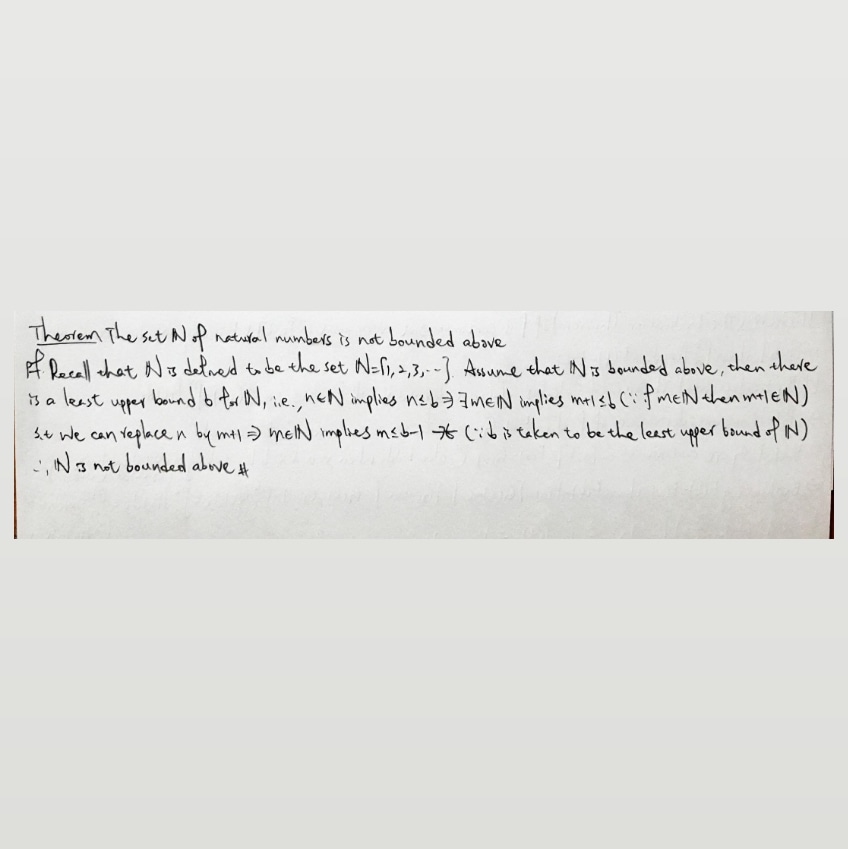 Theorem The set ℕ of natural numbers is not bounded above
Pf. Recall that ℕ is defined to be the set ℕ={1,2,3,...}. Assume that ℕ is bounded above, then there
is a least upper bound b for ℕ, i.e., n∈ℕ implies n≤b ⇒ ∃m∈ℕ implies m+1≤b (∵ if m∈ℕ then m+1∈ℕ)
s.t we can replace n by m+1 ⇒ m∈ℕ implies m≤b-1 →← (∵ b is taken to be the least upper bound of ℕ)
∴, ℕ is not bounded above #